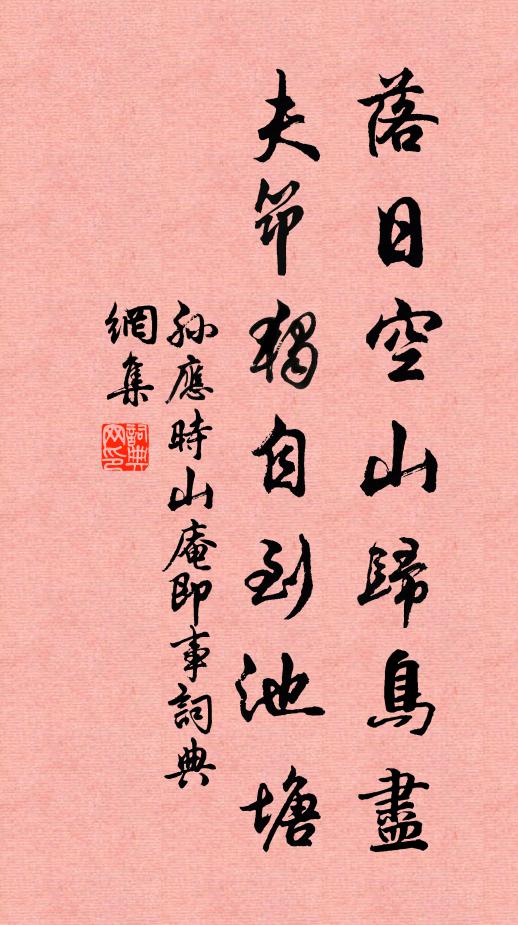 落日空山歸鳥盡
夫筇獨自到池塘
孫應時山庵即事詞典
網集
詞典网印